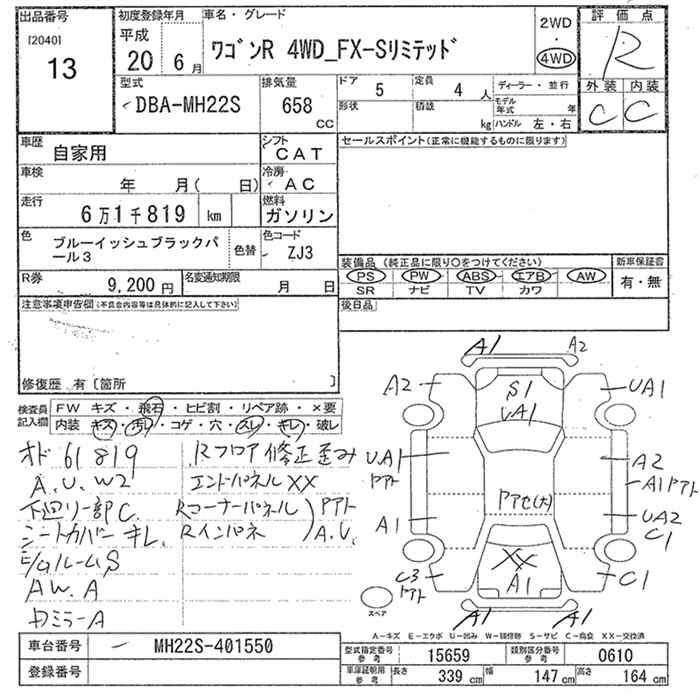 出品番号
[2040]
13
初度登録年月
平成
20 6月
車名・グレード
ワゴンR 4WD_FX-Sリミテッド
2WD
・
4WD
評価点
R
外装 内装
C C
型式
DBA-MH22S
排気量
658
CC
ドア 5
定員 4 人
ディーラー・並行
形状
積載 kg
モデル年式 年
ハンドル 左・右
車歴
自家用
シフト
CAT
セールスポイント(正常に機能するものに限ります)
車検
年 月( 日)
冷房
AC
走行
6万1千819 km
燃料
ガソリン
色
ブルーイッシュブラックパ
ール3
色替
色コード
ZJ3
装備品(純正品に限り○をつけてください)
PS PW ABS エアB AW
SR ナビ TV カワ
新車保証書
有・無
R券
9,200円
名変通知期限
月 日
後日品
注意事項申告欄(不具合内容等は具体的に記入して下さい)
修復歴 有〔箇所 〕
検査員
記入欄
FW キズ・飛石・ヒビ割・リペア跡・×要
内装 キズ・汚レ・コゲ・穴・スレ・キレ・破レ
オド 61819
A.U.W2
下廻リ一部C.
シートカバー キレ.
E/GルームS
AW.A
Dミラー A
Rフロア修正歪み
エンドパネルXX
Rコーナーパネル
Rインパネ
アト
A.U.
A1
A2
A2
S1
UA1
UA1
UA1
アト
A2
A1アト
アアセ(大)
A1
UA2
C1
XX
A1
C3
アト
C1
スペア
A1
A1
A-キズ E-エクボ U-凹み W-補修跡 S-サビ C-腐食 XX-交換済
車台番号
MH22S-401550
登録番号
型式指定番号
参考
15659
類別区分番号
参考
0610
車庫証明用
参考
長さ 339 cm
幅 147 cm
高さ 164 cm